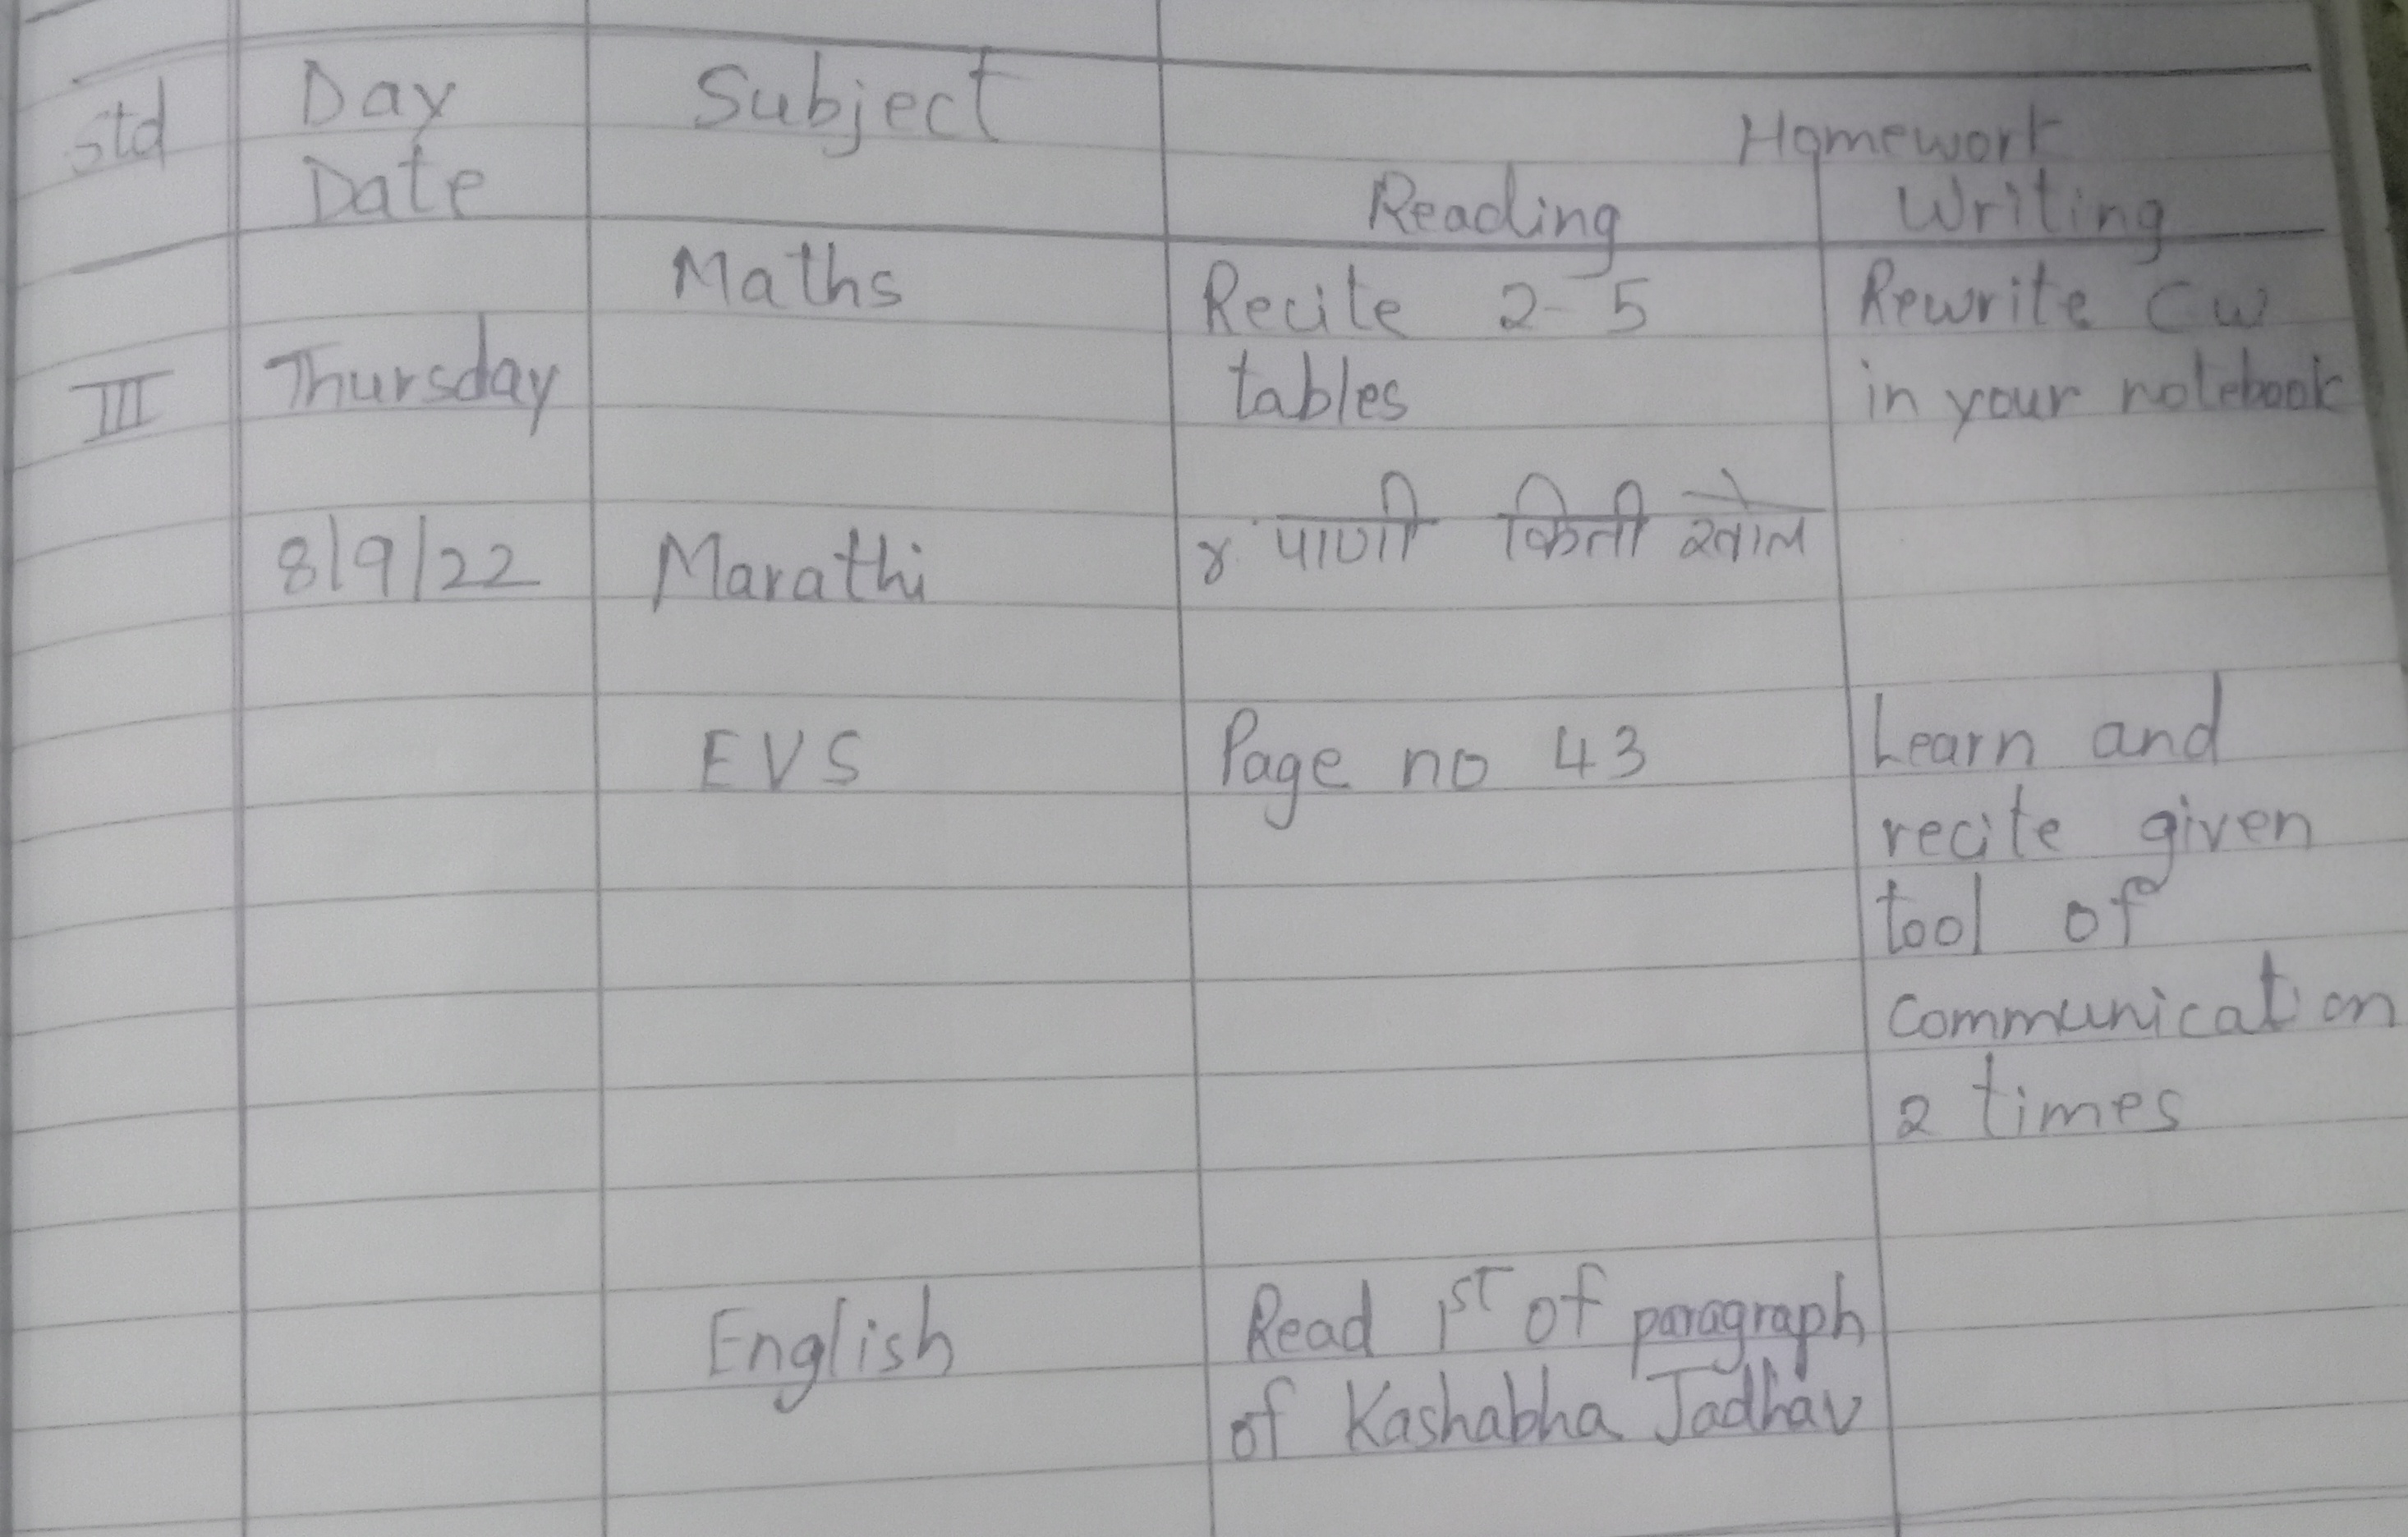 Std Day Subject Homework
Date Reading Writing
Maths Recite 2-5 Rewrite Cw
III Thursday tables in your notebook
8/9/22 Marathi ४. पाणी किती खोल
EVS Page no 43 Learn and
recite given
tool of
communication
2 times
English Read 1st of paragraph
of Kashabha Jadhav